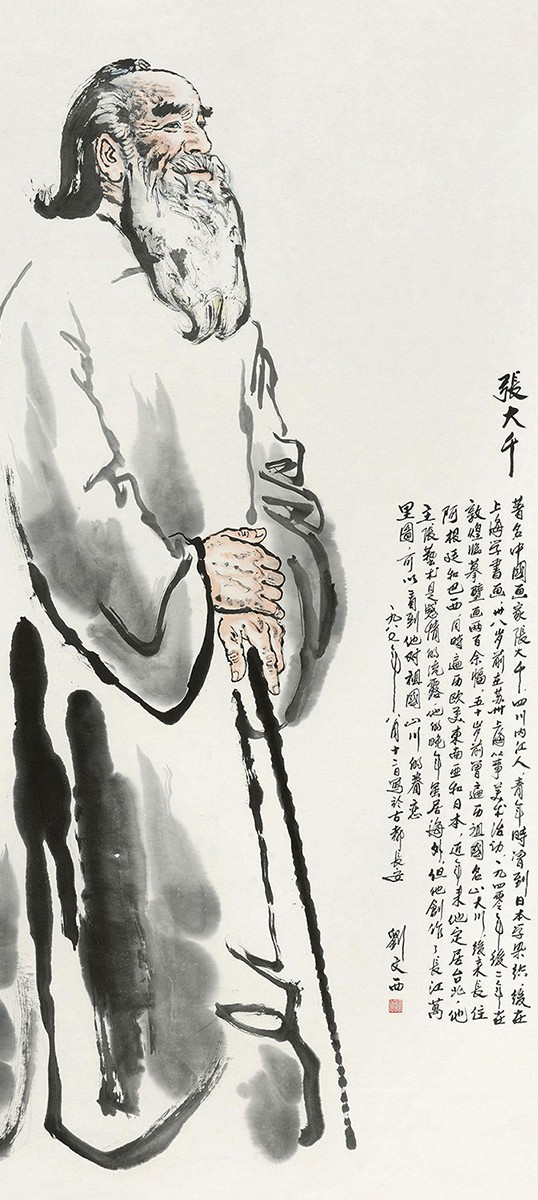 張大千
著名中國画家張大千，四川内江人，青年時曾到日本学染织，後在
上海学書画，卅八岁前在苏州上海从事美术活动，一九四零年後二年在
敦煌临摹壁画两百余幅，五十岁前曾遍历祖國名山大川，後来長住
阿根廷和巴西，同時遍历欧美東南亚和日本，近年来他定居台北，他
主張藝术是感情的流露，他的晚年虽居海外，但他創作了長江萬
里圖，可以看到他对祖國山川的眷恋
一九八〇年八月十二日写於古都長安
劉文西